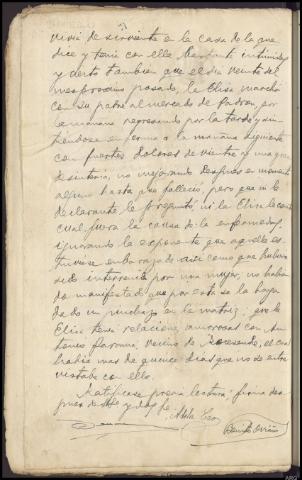 vivió de sirvienta en la casa de la que
dice y tenia con ella bastante intimidad
y cierto tambien que el dia veinte del
mes proximo pasado, la Elisa marchó
con su padre al mercado de Padron, por
la mañana regresando por la tarde y sin
tiéndose enferma a la mañana siguiente
con fuertes dolores de vientre y una gran
disinteria, no mejorando despues en momento
alguno hasta que falleció, pero que ni la
declarante le preguntó, ni la Elisa le contó
cual fuera la causa de la enfermedad,
ignorando la exponente que aquella es-
tuviese embarazada asi como que hubiera
sido intervenida por una mujer, no habien
do manifestado que por esta se la haya
dado un pinchazo en la matriz, que la
Elisa tenia relaciones amorosas con An-
tonio vecino de el cual
habia mas de quince dias que no se entre
vistaba con ella.
Ratificase previa lectura, firma des-
pues de S.Sª y doy fe